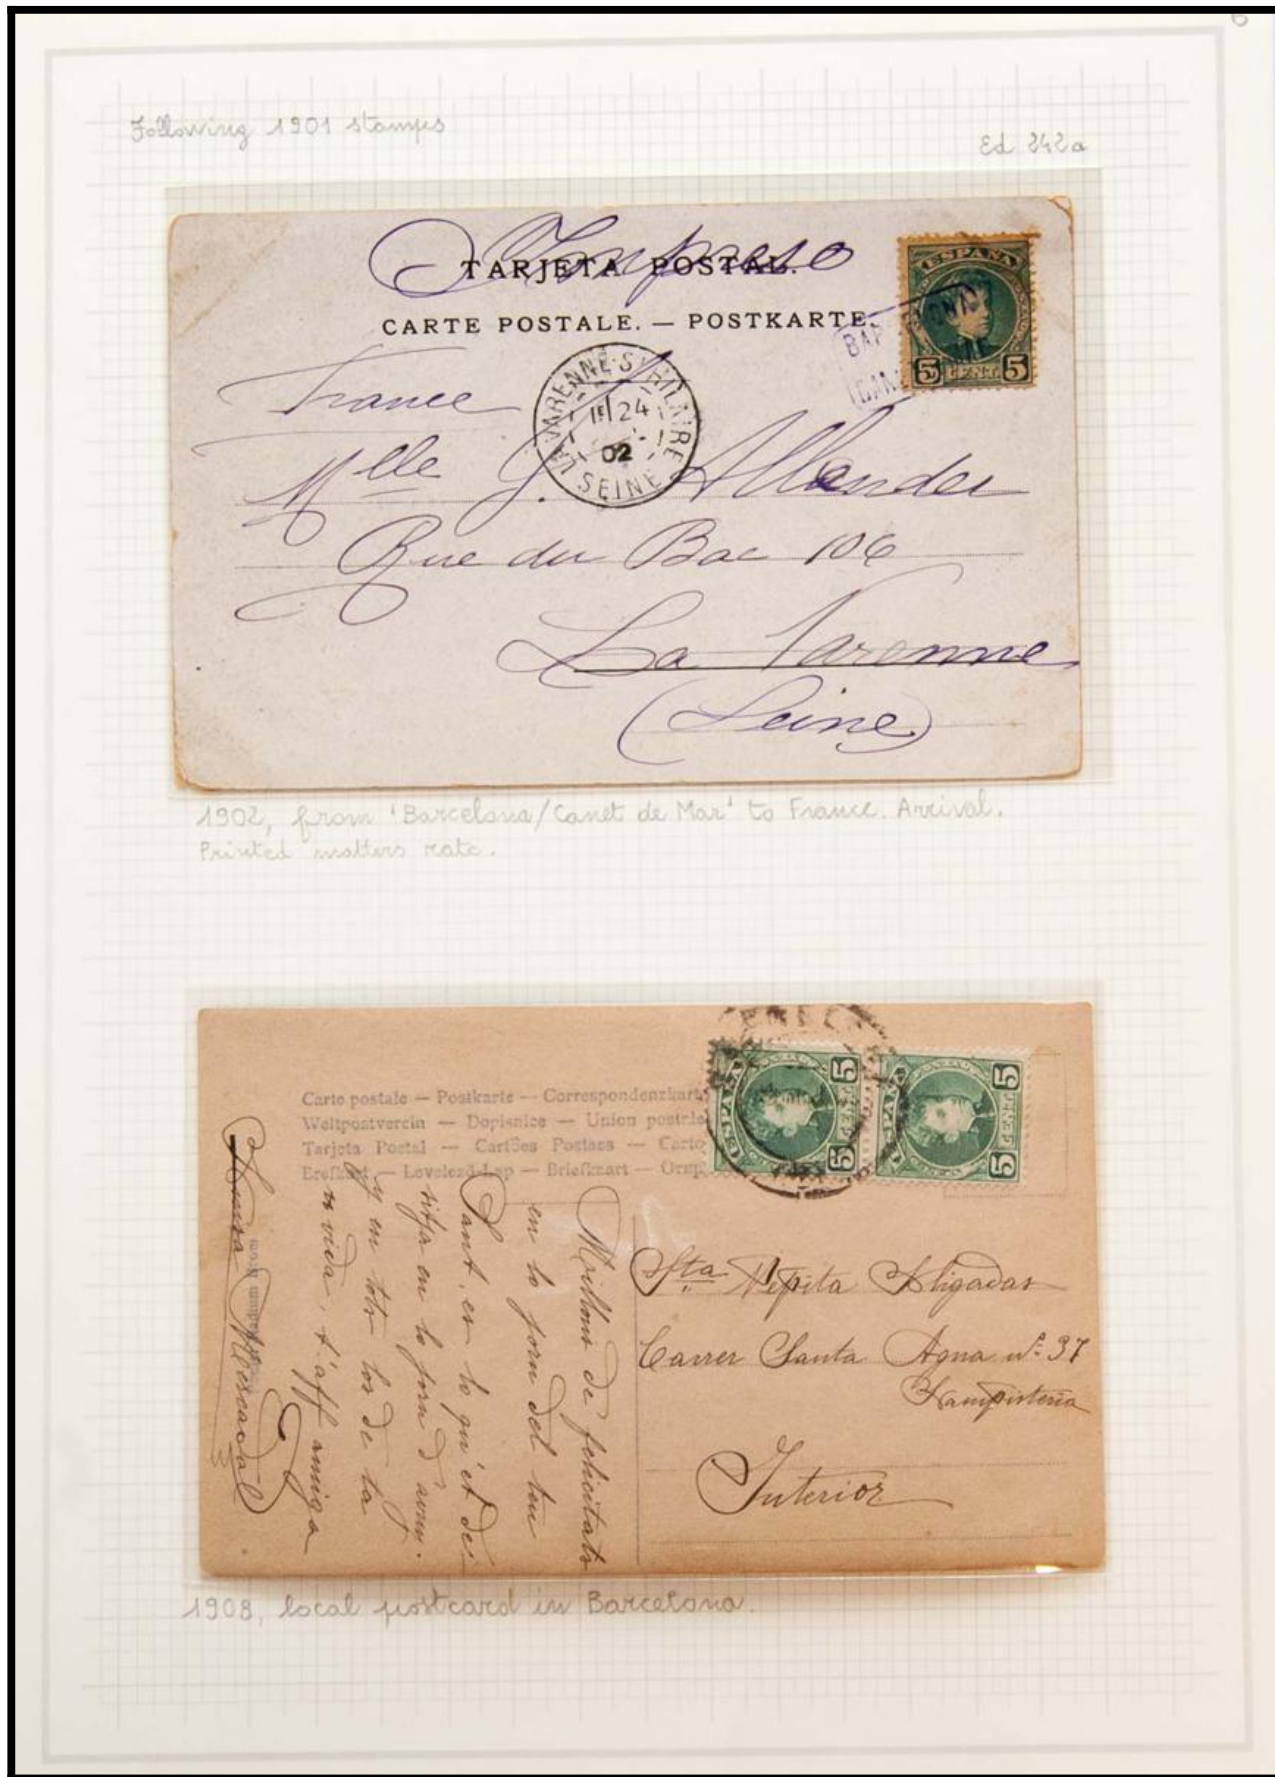 6
Following 1901 stamps
Ed 242a
Impreso
TARJETA POSTAL.
CARTE POSTALE. — POSTKARTE.
ESPAÑA
5 CENT. 5
BAR ONA
CAN
LA VARENNE-ST HILAIRE
24
02
SEINE
France
Mlle J. Allender
Rue du Bac 106
La Varenne
(Seine)
1902, from 'Barcelona/Canet de Mar' to France. Arrival.
Printed matters rate.
Carte postale — Postkarte — Correspondenzkart
Weltpostverein — Dopisnice — Union postale
Tarjeta Postal — Cartões Postaes — Carto
Brefkort — Levelező-Lap — Briefkaart —
ESPAÑA
5 CENT. 5
ESPAÑA
5 CENT. 5
Millons de felicitats
en lo jorn del teu
Sant, es lo qu'et de-
sitja en lo jorn d'avuy.
y en tots los de ta
vida, t'aff amiga
Mercadal
Sta Pepita Aligadas
Carrer Santa Agna nº 37
Llampisteria
Interior
1908, local postcard in Barcelona.